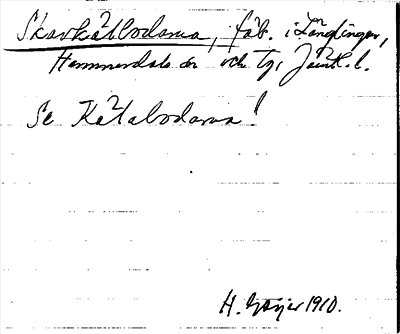 Skarkåtbodarna, fäb. i Långlingen,
Hammerdals sn och tg, Jämtl. l.
Se Kåtabodarna!
H. Geijer 1910.